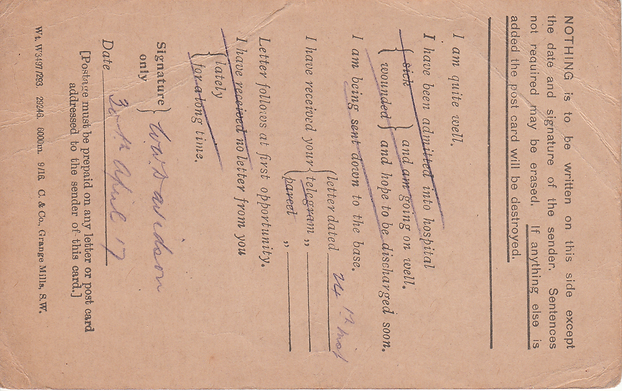 NOTHING is to be written on this side except
the date and signature of the sender. Sentences
not required may be erased. If anything else is
added the post card will be destroyed.
I am quite well.
I have been admitted into hospital
{ sick } and am going on well.
{ wounded } and hope to be discharged soon.
I am being sent down to the base.
I have received your { letter dated 24th
telegram „
parcel „
Letter follows at first opportunity.
I have received no letter from you
{ lately
for a long time.
Signature
only }
Date 30th April 17
[Postage must be prepaid on any letter or post card
addressed to the sender of this card.]
Wt. W3497/293 29246. 6000m. 9/16. C. & Co., Grange Mills, S.W.